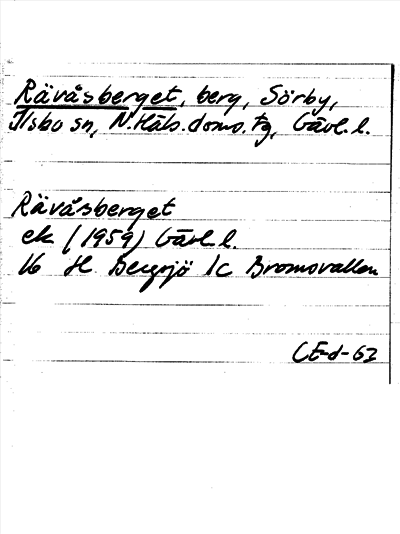 Rävåsberget, berg, Sörby,
Ilsbo sn, N. Häls. doms. tg, Gävl. l.
Rävåsberget
ek (1959) Gävl l.
16 H Bergsjö 1c Bromsvallen
CE-d-63